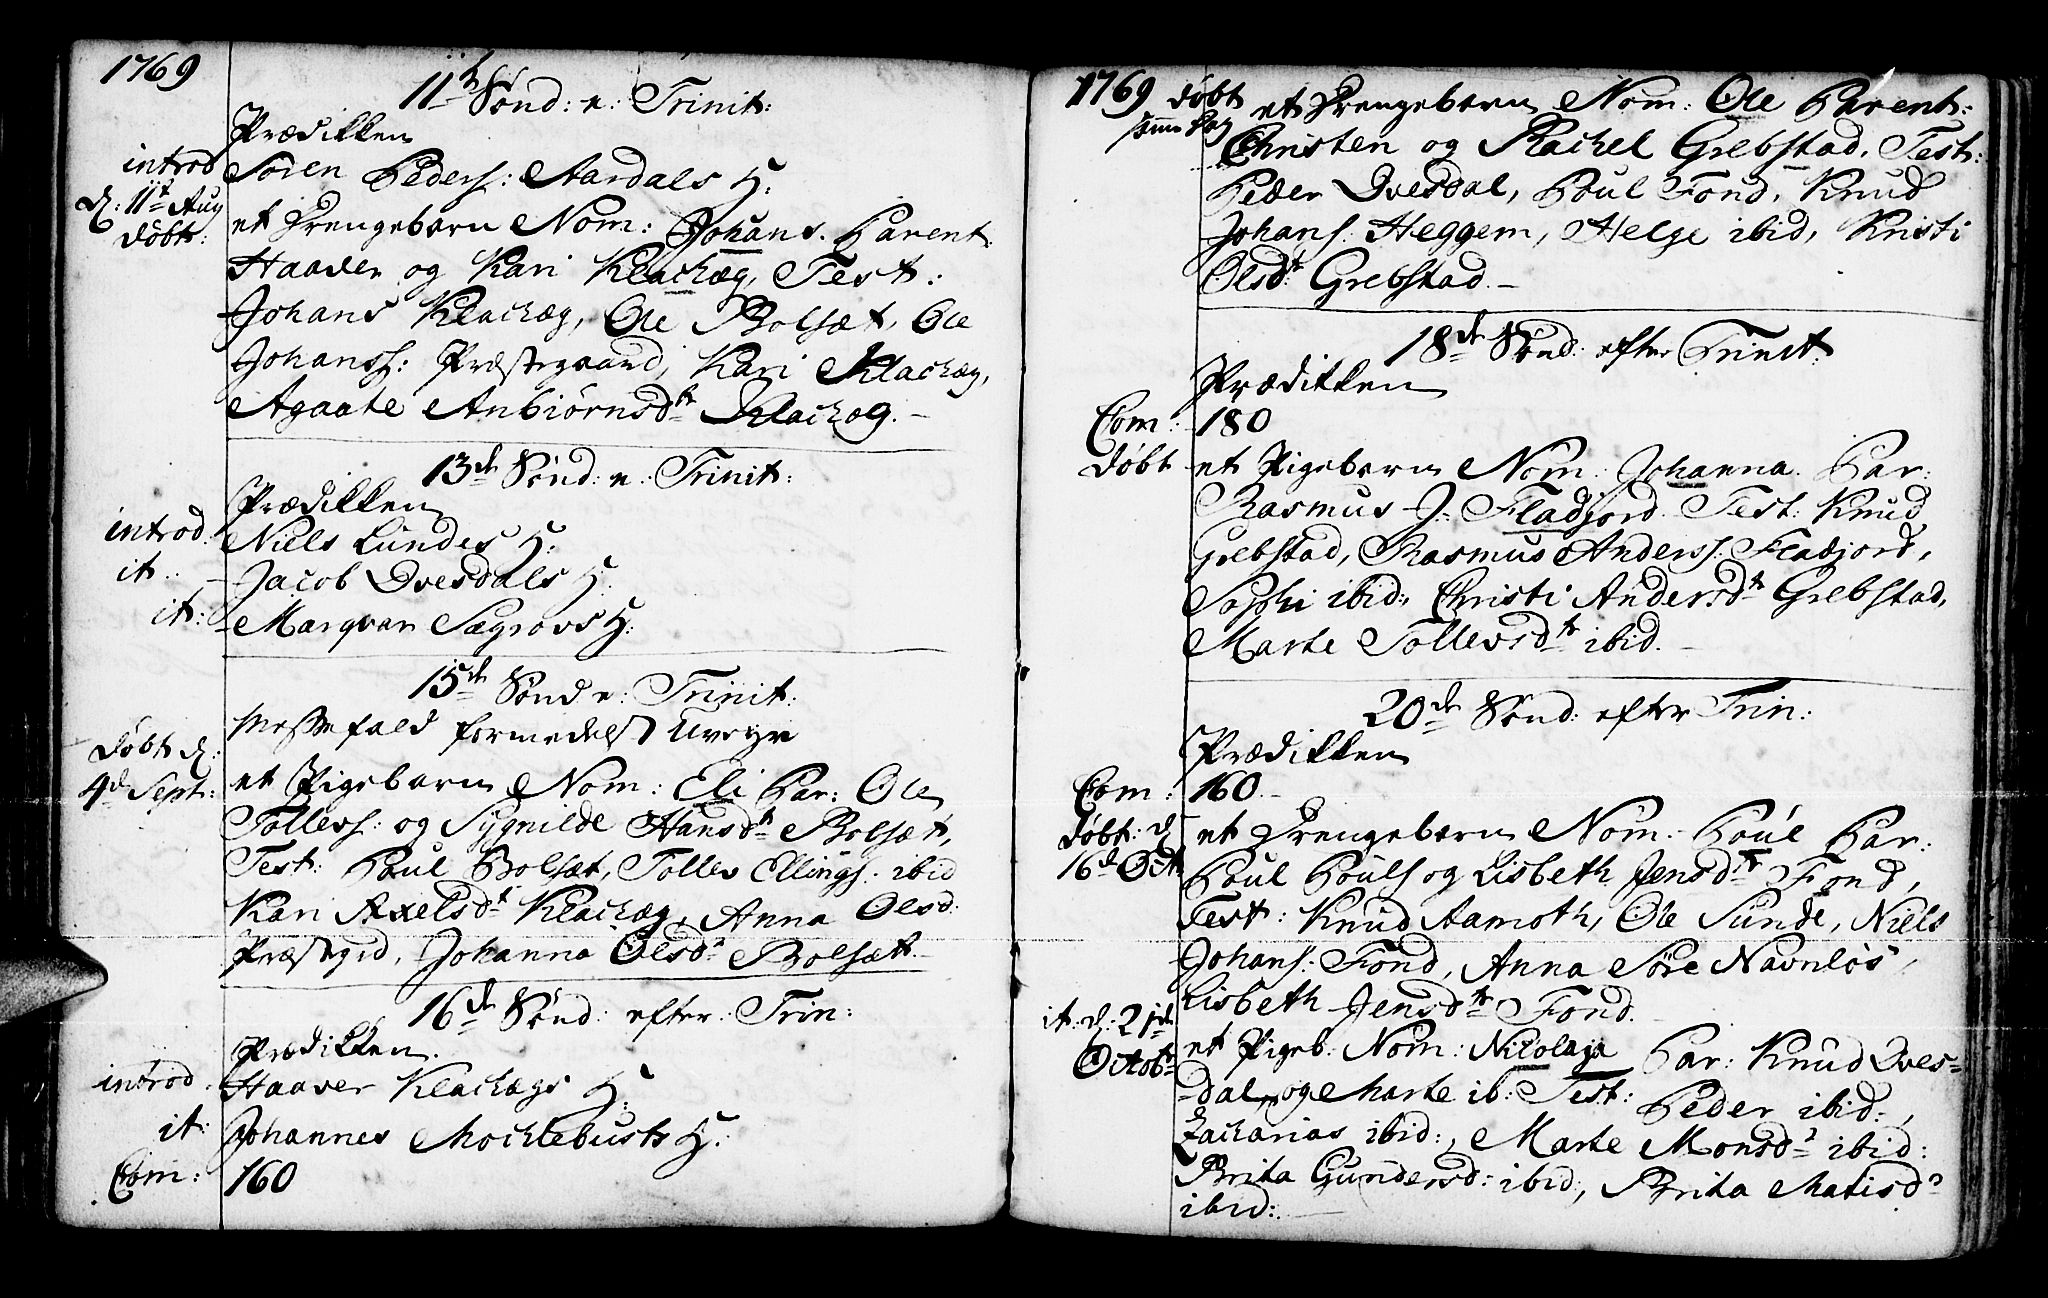 1769
11te Sønd: e: Trinit:
Prædikken
introd Søren Peders: Aardals H:
d: 11te Aug
døbt: et Drengebarn Nom: Johans. Parent:
Haaver og Kari Klachæg, Test:
Johans Klachæg, Ole Bolsæt, Ole
Johanss: Præstegaard, Kari Klachæg,
Agaate Anbiørnsdtr Klachæg.
13de Sønd: e: Trinit:
Prædikken
introd: Niels Lundes H:
it: Jacob Dvesdals H:
it: Marqvar Sægrovs H:
15de Sønd e: Trinit:
Messefald formedelst Uveyr
døbt d:
4de Sept: et Pigebarn Nom: Eli Par: Ole
Tollevs: og Sygnilde Hansdtr Bolsæt,
Test: Poul Bolsæt, Tollev Ellings: ibid
Kari Axelsdtr Klachæg, Anna Olsd:
Præstgrd, Johanna Olsdr Bolsætt.
16de Sønd: efter: Trin:
Prædikken.
introd: Haaver Klachægs H:
it: Johannes Mochlebusts H:
Com: 160
1769 døbt et Drengebarn Nom: Ole Parent:
samme Dag Christen og Rachel Grebstad, Test:
Peder Dvesdal, Poul Fond, Knud
Johans: Heggem, Helge ibid, Kristi
Olsdtr Grebstad.
18de Sønd: efter Trinit:
Prædikken
Com: 180
døbt et Pigebarn Nom: Johanna. Par:
Rasmus J: Fladjord. Test: Knud
Grebstad, Rasmus Anders: Fladjord,
Sophi ibid:, Christi Andersdtr Grebstad,
Marte Tollevsdtr ibid.
20de Sønd: efter Trin:
Prædikken
Com: 160.
døbt: d
16de Oct: et Drengebarn Nom: Poul Par:
Poul Pouls og Lisbeth Jensdtr Fond,
Test: Knud Aamoth, Ole Sunde, Niels
Johans: Fond, Anna Søre Navnløs,
Lisbeth Jensdtr Fond.
it: d: 21de
Octobr et Pigeb: Nom: Nicolaja Par: Knud Dves-
dal og Marte ib: Test: Peder ibid:,
Zacharias ibid:, Marte Monsdr ibid:
Brita Gundersd: ibid:, Brita Matisdr
ibid: